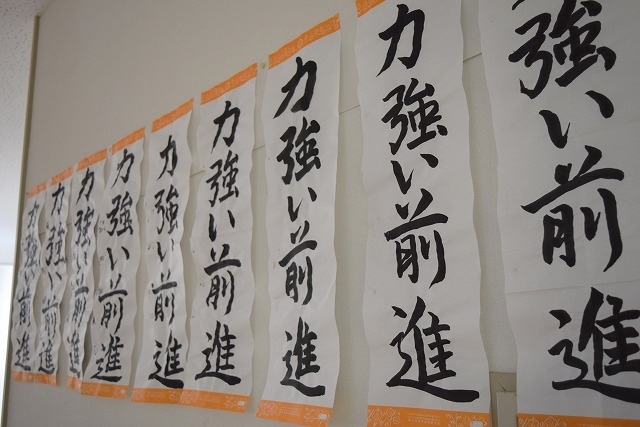 強い前進
力強い前進
力強い前進
力強い前進
力強い前進
力強い前進
力強い前進
力強い前進
力強い前進